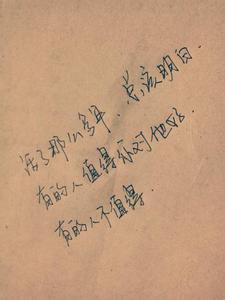 活了那么多年、总该明白.
有的人值得你对他好
有的人不值得.